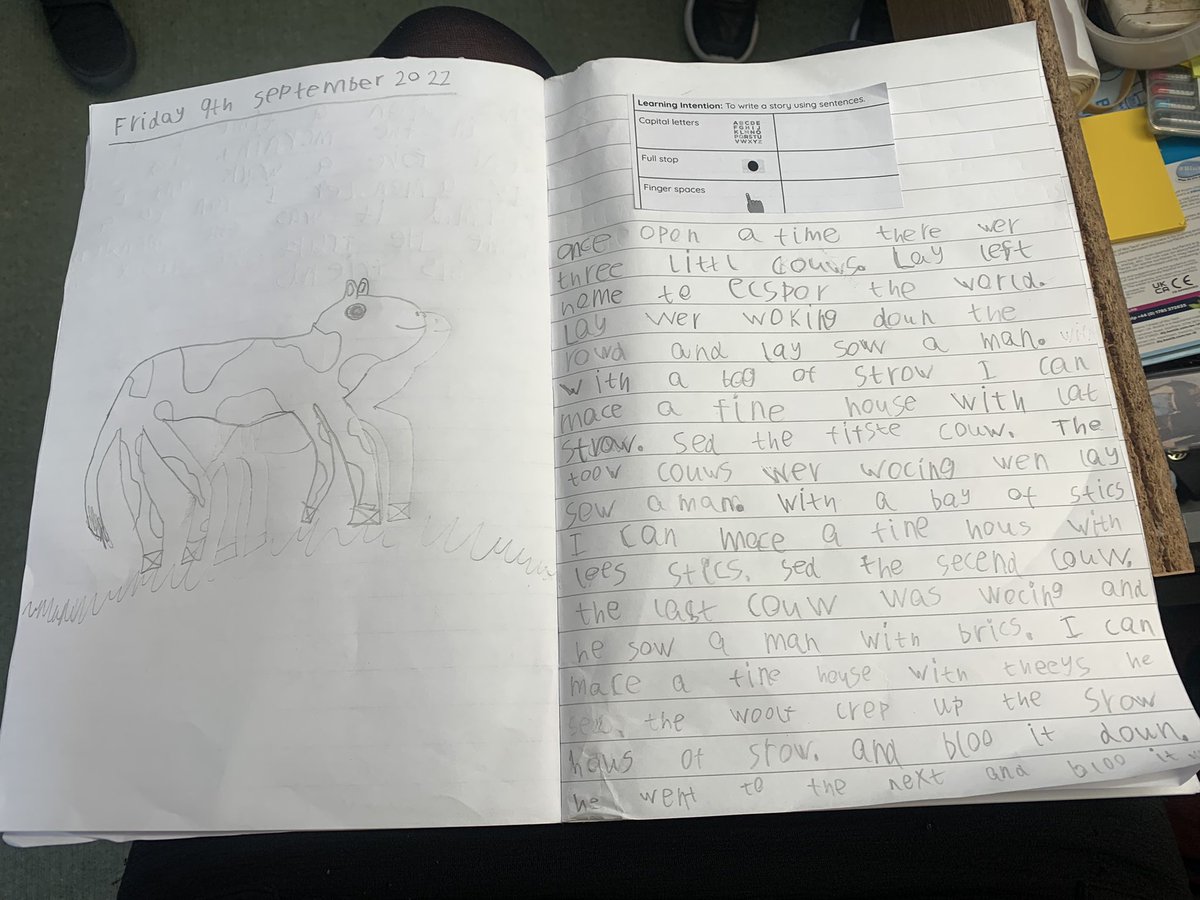 Friday 9th September 2022
Learning Intention: To write a story using sentences.
Capital letters
ABCDE
FGHIJ
KLMNO
PQRSTU
VWXYZ
Full stop
Finger spaces
once open a time there wer
three littl couws. Lay left
home to ecspor the world.
Lay wer woking doun the
rowd and lay sow a man.
with a bag of strow I can
mace a fine house with lat
strow. sed the fitste couw. The
toow couws wer wocing wen lay
sow a man. with a bay of stics
I can mace a fine hous with
lees stics. sed the secend couw.
the last couw was wocing and
he sow a man with brics. I can
mace a fine house with theeys he
sed. the woolf crep up the Strow
hous of strow. and bloo it doun.
he went to the next and bloo it
UK
CA CE